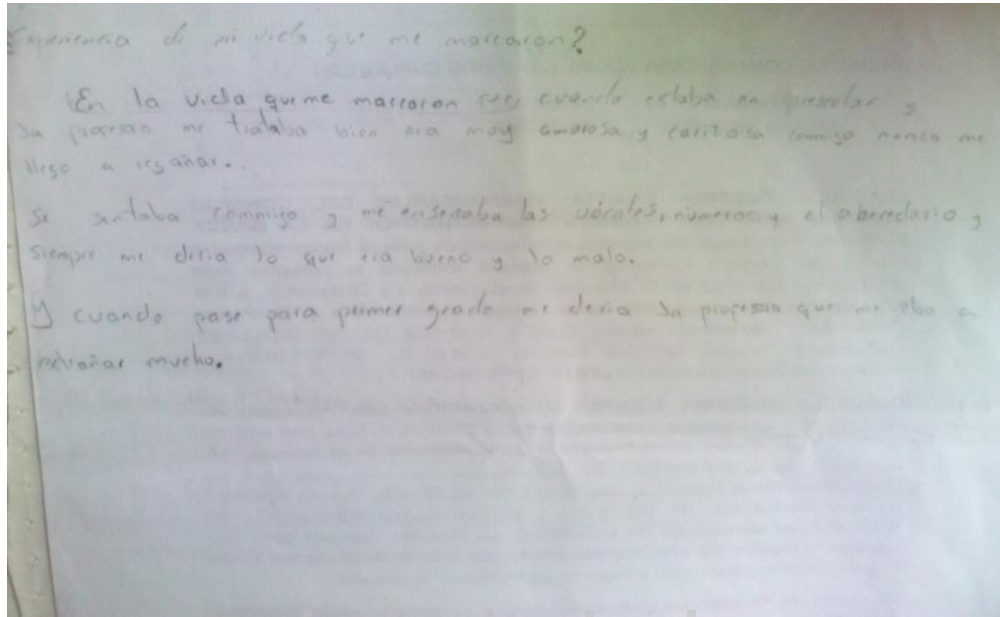 Experiencia de mi vida que me marcaron?
En la vida que me marcaron fue, cuando estaba en preescolar y
la profesora me trataba bien era muy amorosa y cariñosa conmigo nunca me
llego a regañar.
Se sentaba commigo y me enseñaba las vócales, números y el abecedario y
siempre me decia lo que era bueno y lo malo.
Y cuando pase para primer grado me decia la profesora que me iba a
extrañar mucho.